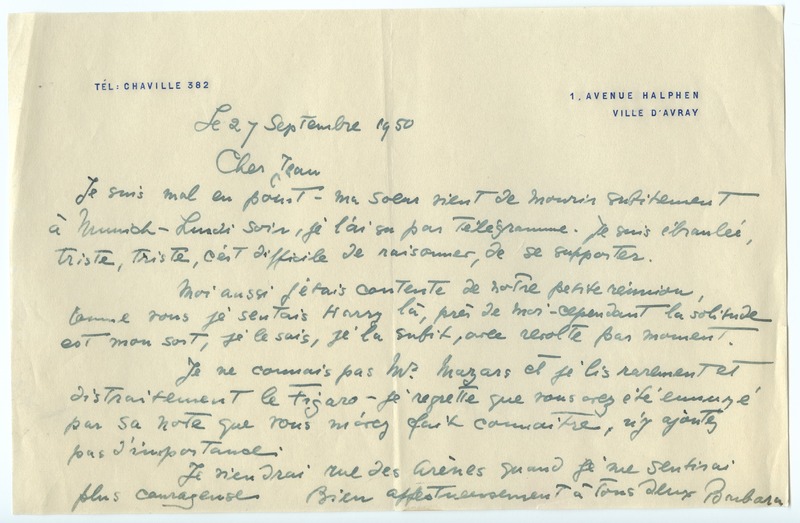 TÉL: CHAVILLE 382
1, AVENUE HALPHEN
VILLE D'AVRAY
Le 27 Septembre 1950
Cher Jean
Je suis mal en point - ma soeur vient de mourir subitement
à Munich - Lundi soir, je l'ai su par télégramme. Je suis ébranlée,
triste, triste, c'est difficile de raisonner, de se supporter.
Moi aussi j'étais contente de notre petite réunion,
comme vous je sentais Harry là, près de moi - cependant la solitude
est mon sort, je le sais, je la subit, avec révolte par moment.
Je ne connais pas Mr. Mazars et je lis rarement et
distraitement le Figaro - je regrette que vous avez été ennuyé
par sa note que vous m'avez fait connaître, n'y ajoutez
pas d'importance
Je viendrai rue des Arènes quand je me sentirai
plus courageuse Bien affectueusement à tous deux Barbara